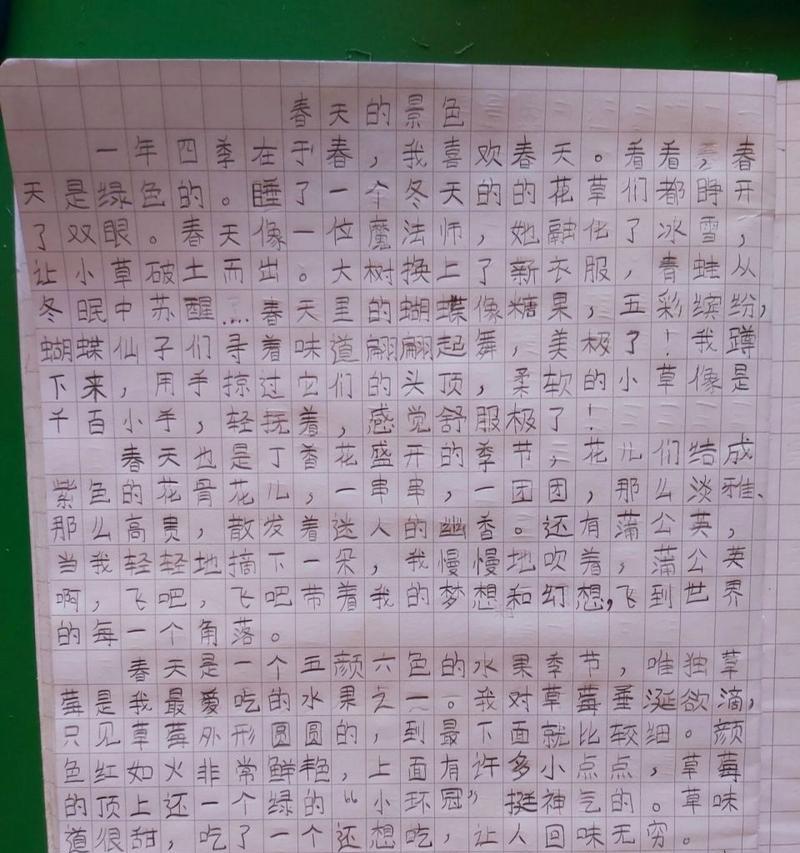 春天的景色
一年四季在于春，我喜欢春天。看看，春
天是绿色的。睡了一个冬天的的花草们都睁开
了双眼。春天像一位魔法师，她融化了冰雪，
让小草破土而出。大树换上了新衣服，青蛙从
冬眠中苏醒……春天里的蝴蝶像糖果，五彩缤纷，
蝴蝶仙子们寻着味道翩翩起舞，美极了！我蹲
下来，用手掠过它们的头顶，柔软的小草像是
千百小手，轻抚着，感觉舒服极了！
春天也是丁香花盛开的季节，花儿们结成
紫色的花骨花儿，一串串，一团团，那么淡雅、
那么高贵，散发着迷人的幽香。还有蒲公英，
当我轻轻地摘下一朵，我慢慢地吹着，蒲公英
啊，飞吧，飞吧带着我的梦想和幻想，飞到世界
的每一个角落。
春天是一个五颜六色的水果季节，唯独草
莓是我最爱吃的水果之一。我对草莓垂涎欲滴，
只见草莓外形圆圆的，到最下面就比较细。颜
色红如火非常鲜艳，上面有许多小点点，草莓
的顶上还一个绿的“小环冠”挺神气的。草味
道很甜，吃了一个还想吃，让人回味无穷。